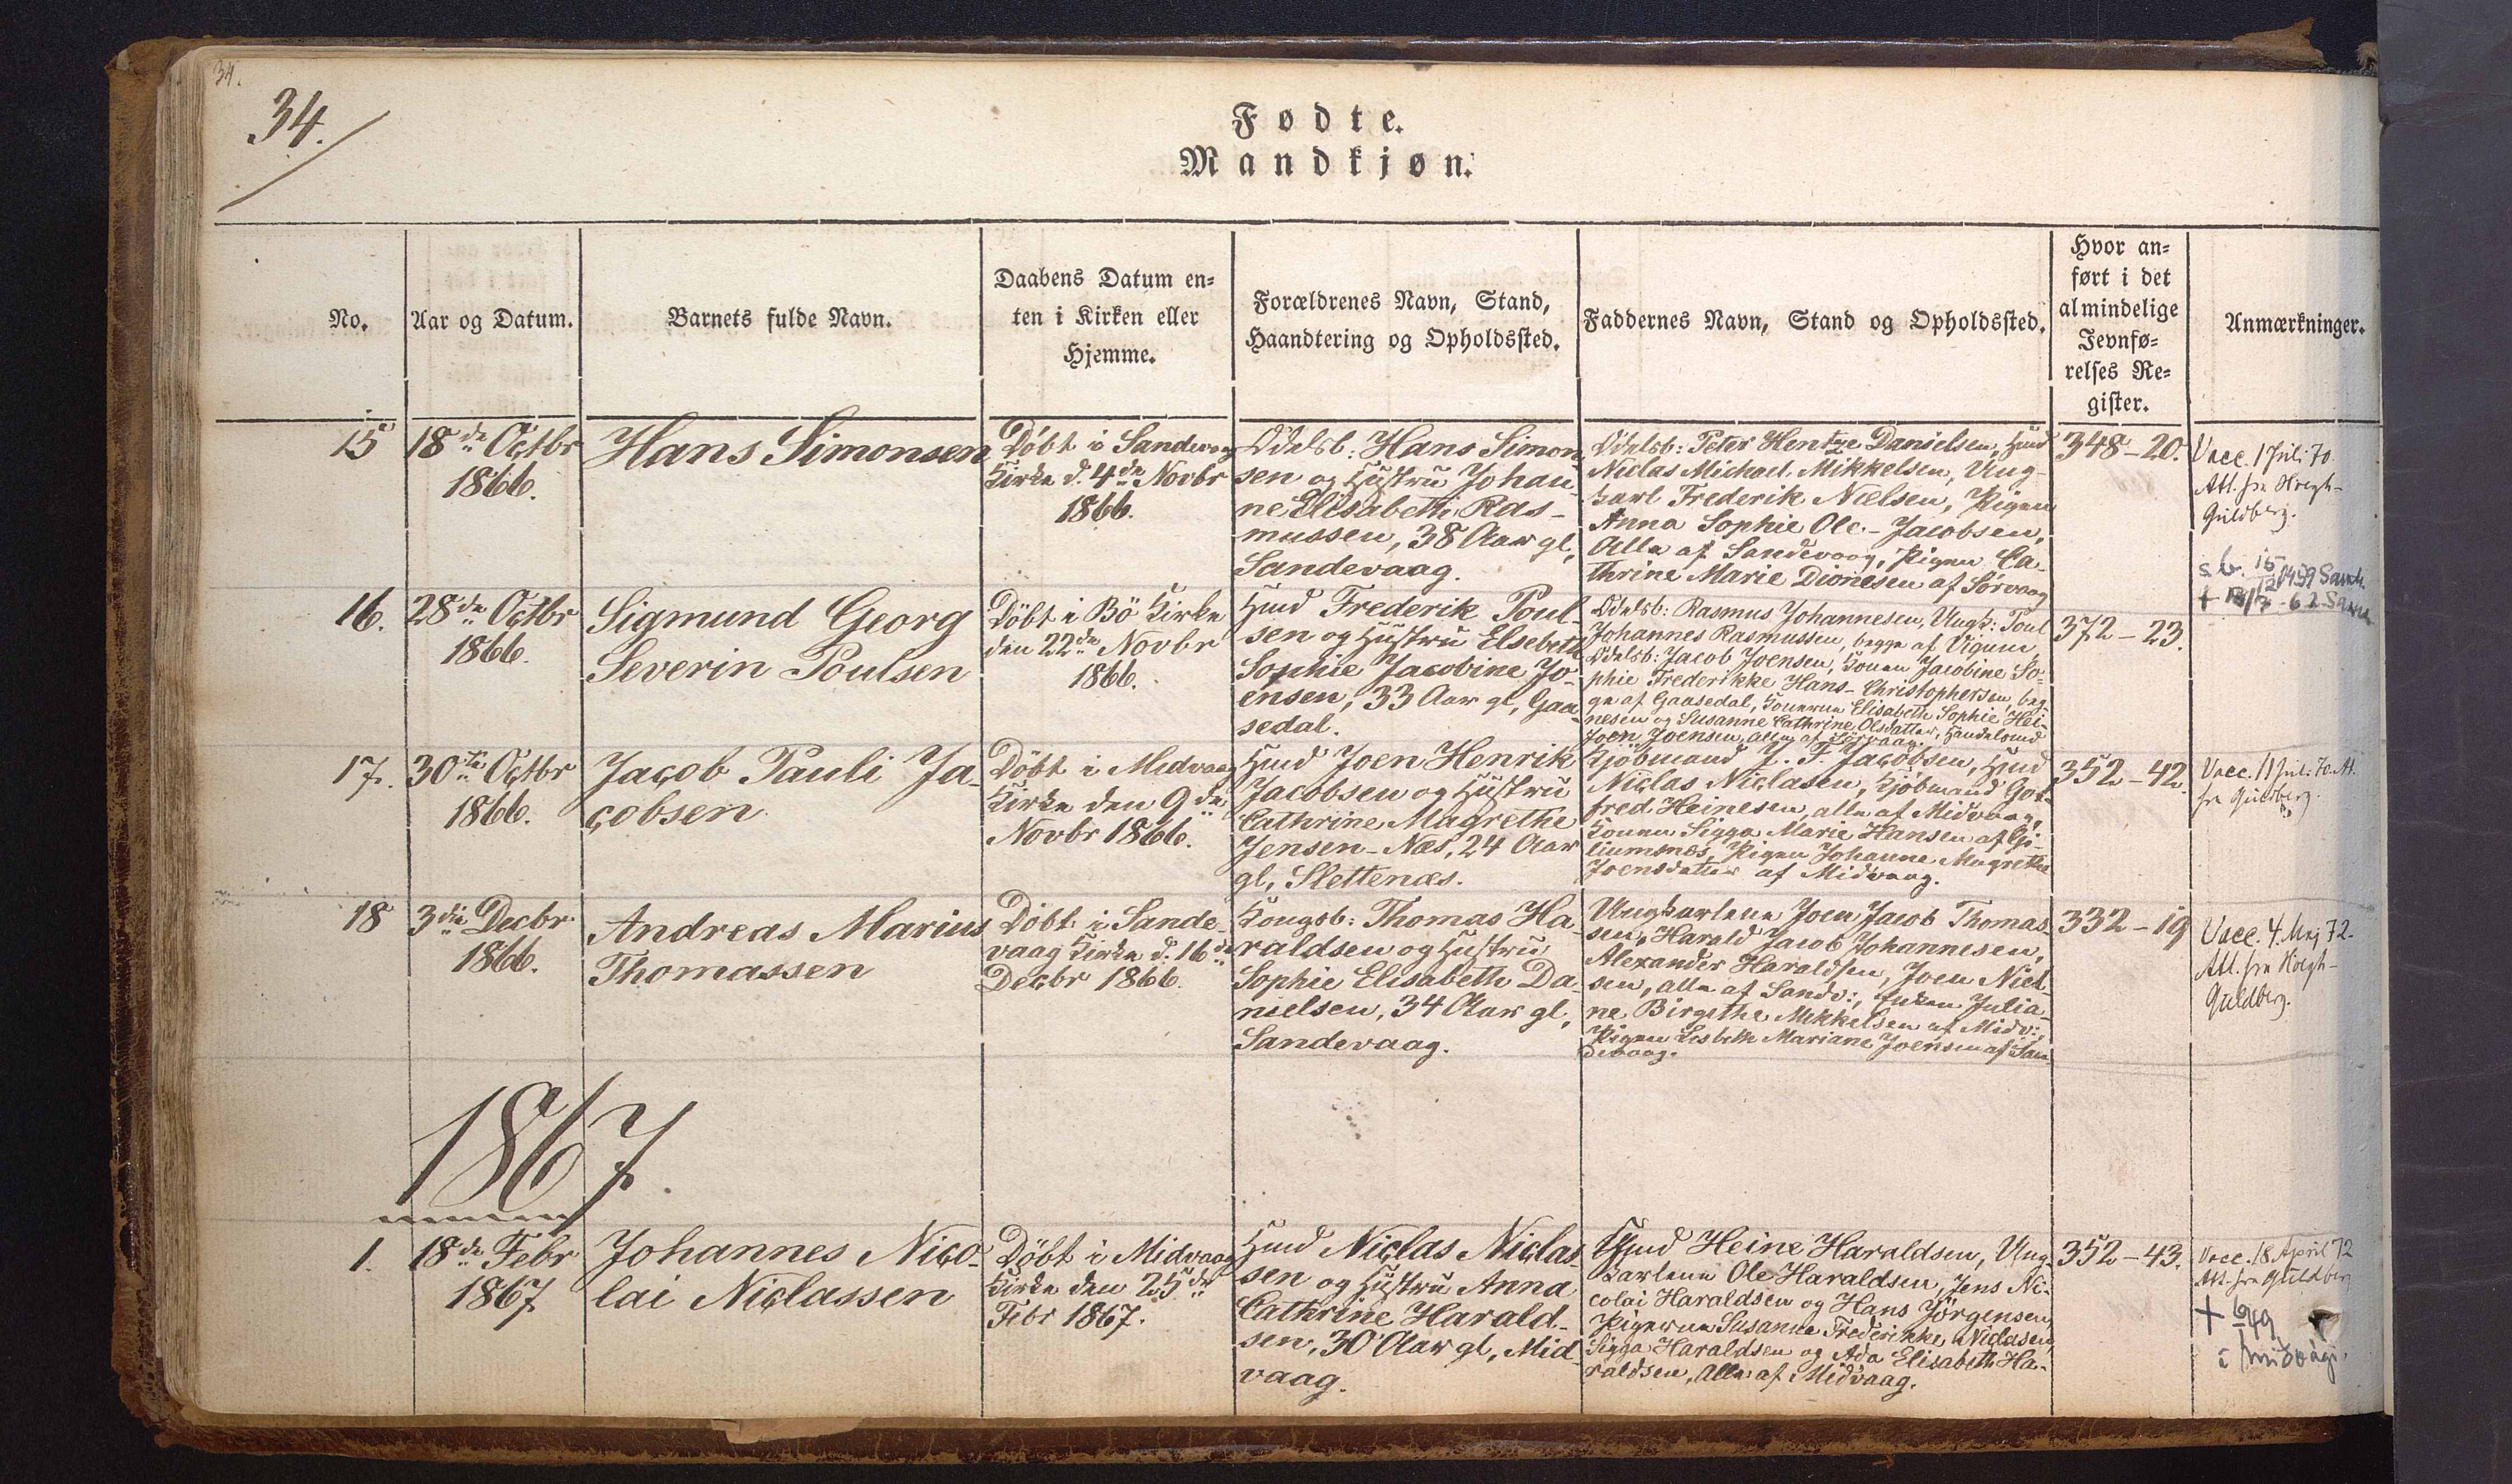 34.
34.
Fødte.
Mandkjøn.
No.
Aar og Datum.
Barnets fulde Navn.
Daabens Datum en=
ten i Kirken eller
Hjemme.
Forældrenes Navn, Stand,
Haandtering og Opholdssted.
Faddernes Navn, Stand og Opholdssted.
Hvor an=
ført i det
almindelige
Jevnfø=
relses Re=
gister.
Anmærkninger.
15
18de Octbr
1866.
Hans Simonsen
Döbt i Sandevaag
Kirke d. 4de Novbr
1866.
Odelsb: Hans Simon-
sen og Hustru Johan-
ne Elisabeth Ras-
mussen, 38 Aar gl,
Sandevaag.
Odelsb: Peter Hentze Danielsen, Hmd
Niclas Michael Mikkelsen, Ung-
karl Frederik Nielsen, Pigen
Anna Sophie Ole-Jacobsen,
Alle af Sandevaag, Pigen Ca-
thrine Marie Dionesen af Sørvaag
348-20.
Vacc. 1 Juli 70.
Att. fra Høegh-
Guldberg.
16.
28de Octbr
1866.
Sigmund Georg
Severin Poulsen
Döbt i Bö Kirke
den 22de Novbr
1866.
Hmd Frederik Poul-
sen og Hustru Elsebeth
Sophie Jacobine Jo-
ensen, 33 Aar gl, Gaa-
sedal.
Odelsb: Rasmus Johannesen, Ungk: Poul
Johannes Rasmussen, begge af Viguum,
Odelsb: Jacob Joensen, Konen Jacobine So-
phie Frederikke Hans-Christophersen, beg-
ge af Gaasedal, Konerne Elisabeth Sophie Hei-
nesen og Susanne Cathrine Olsdatter,
Joen Joensen, alle af Sörvaag.
372-23.
17.
30te Octbr
1866.
Jacob Pauli Ja-
cobsen
Döbt i Midvaag
Kirke den 9de
Novbr 1866.
Hmd Joen Henrik
Jacobsen og Hustru
Cathrine Magrethe
Jensen-Næs, 24 Aar
gl, Slettenæs.
Kjöbmand J. F. Jacobsen, Hmd
Niclas Niclasen, Kjöbmand Got-
fred Heinesen, alle af Midvaag,
Konen Sigga Marie Hansen af Gi-
liumsnæs, Pigen Johanne Magrethe
Joensdatter af Midvaag.
352-42.
Vacc. 11 Juli 70. Att.
fra Guldberg.
18
3die Decbr
1866.
Andreas Marius
Thomassen
Döbt i Sande-
vaag Kirke d. 16de
Decbr 1866.
Kongsb: Thomas Ha-
raldsen og Hustru
Sophie Elisabeth Da-
nielsen, 34 Aar gl,
Sandevaag.
Ungkarlene Joen Jacob Thomas-
sen, Harald Jacob Johannesen,
Alexander Haraldsen, Joen Niel-
sen, alle af Sandv:, Enken Julia-
ne Birgithe Mikkelsen af Midv:,
Pigen Lisbeth Mariane Joensen af San-
devaag.
332-19
Vacc. 4. Maj 72.
Att. fra Høegh-
Guldberg.
1867.
1.
18de Febr
1867
Johannes Nico-
lai Niclassen
Döbt i Midvaag
Kirke den 25de
Febr 1867.
Hmd Niclas Niclas-
sen og Hustru Anna
Cathrine Harald-
sen, 30 Aar gl, Mid-
vaag.
Hmd Heine Haraldsen, Ung-
karlene Ole Haraldsen, Jens Ni-
colai Haraldsen og Hans Jörgensen,
Pigerne Susanne Frederikke Niclasen,
Sigga Haraldsen og Ada Elisabeth Ha-
raldsen, Alle af Midvaag.
352-43.
Vacc. 18 April 72
Att. fra Guldberg
i Miðvági